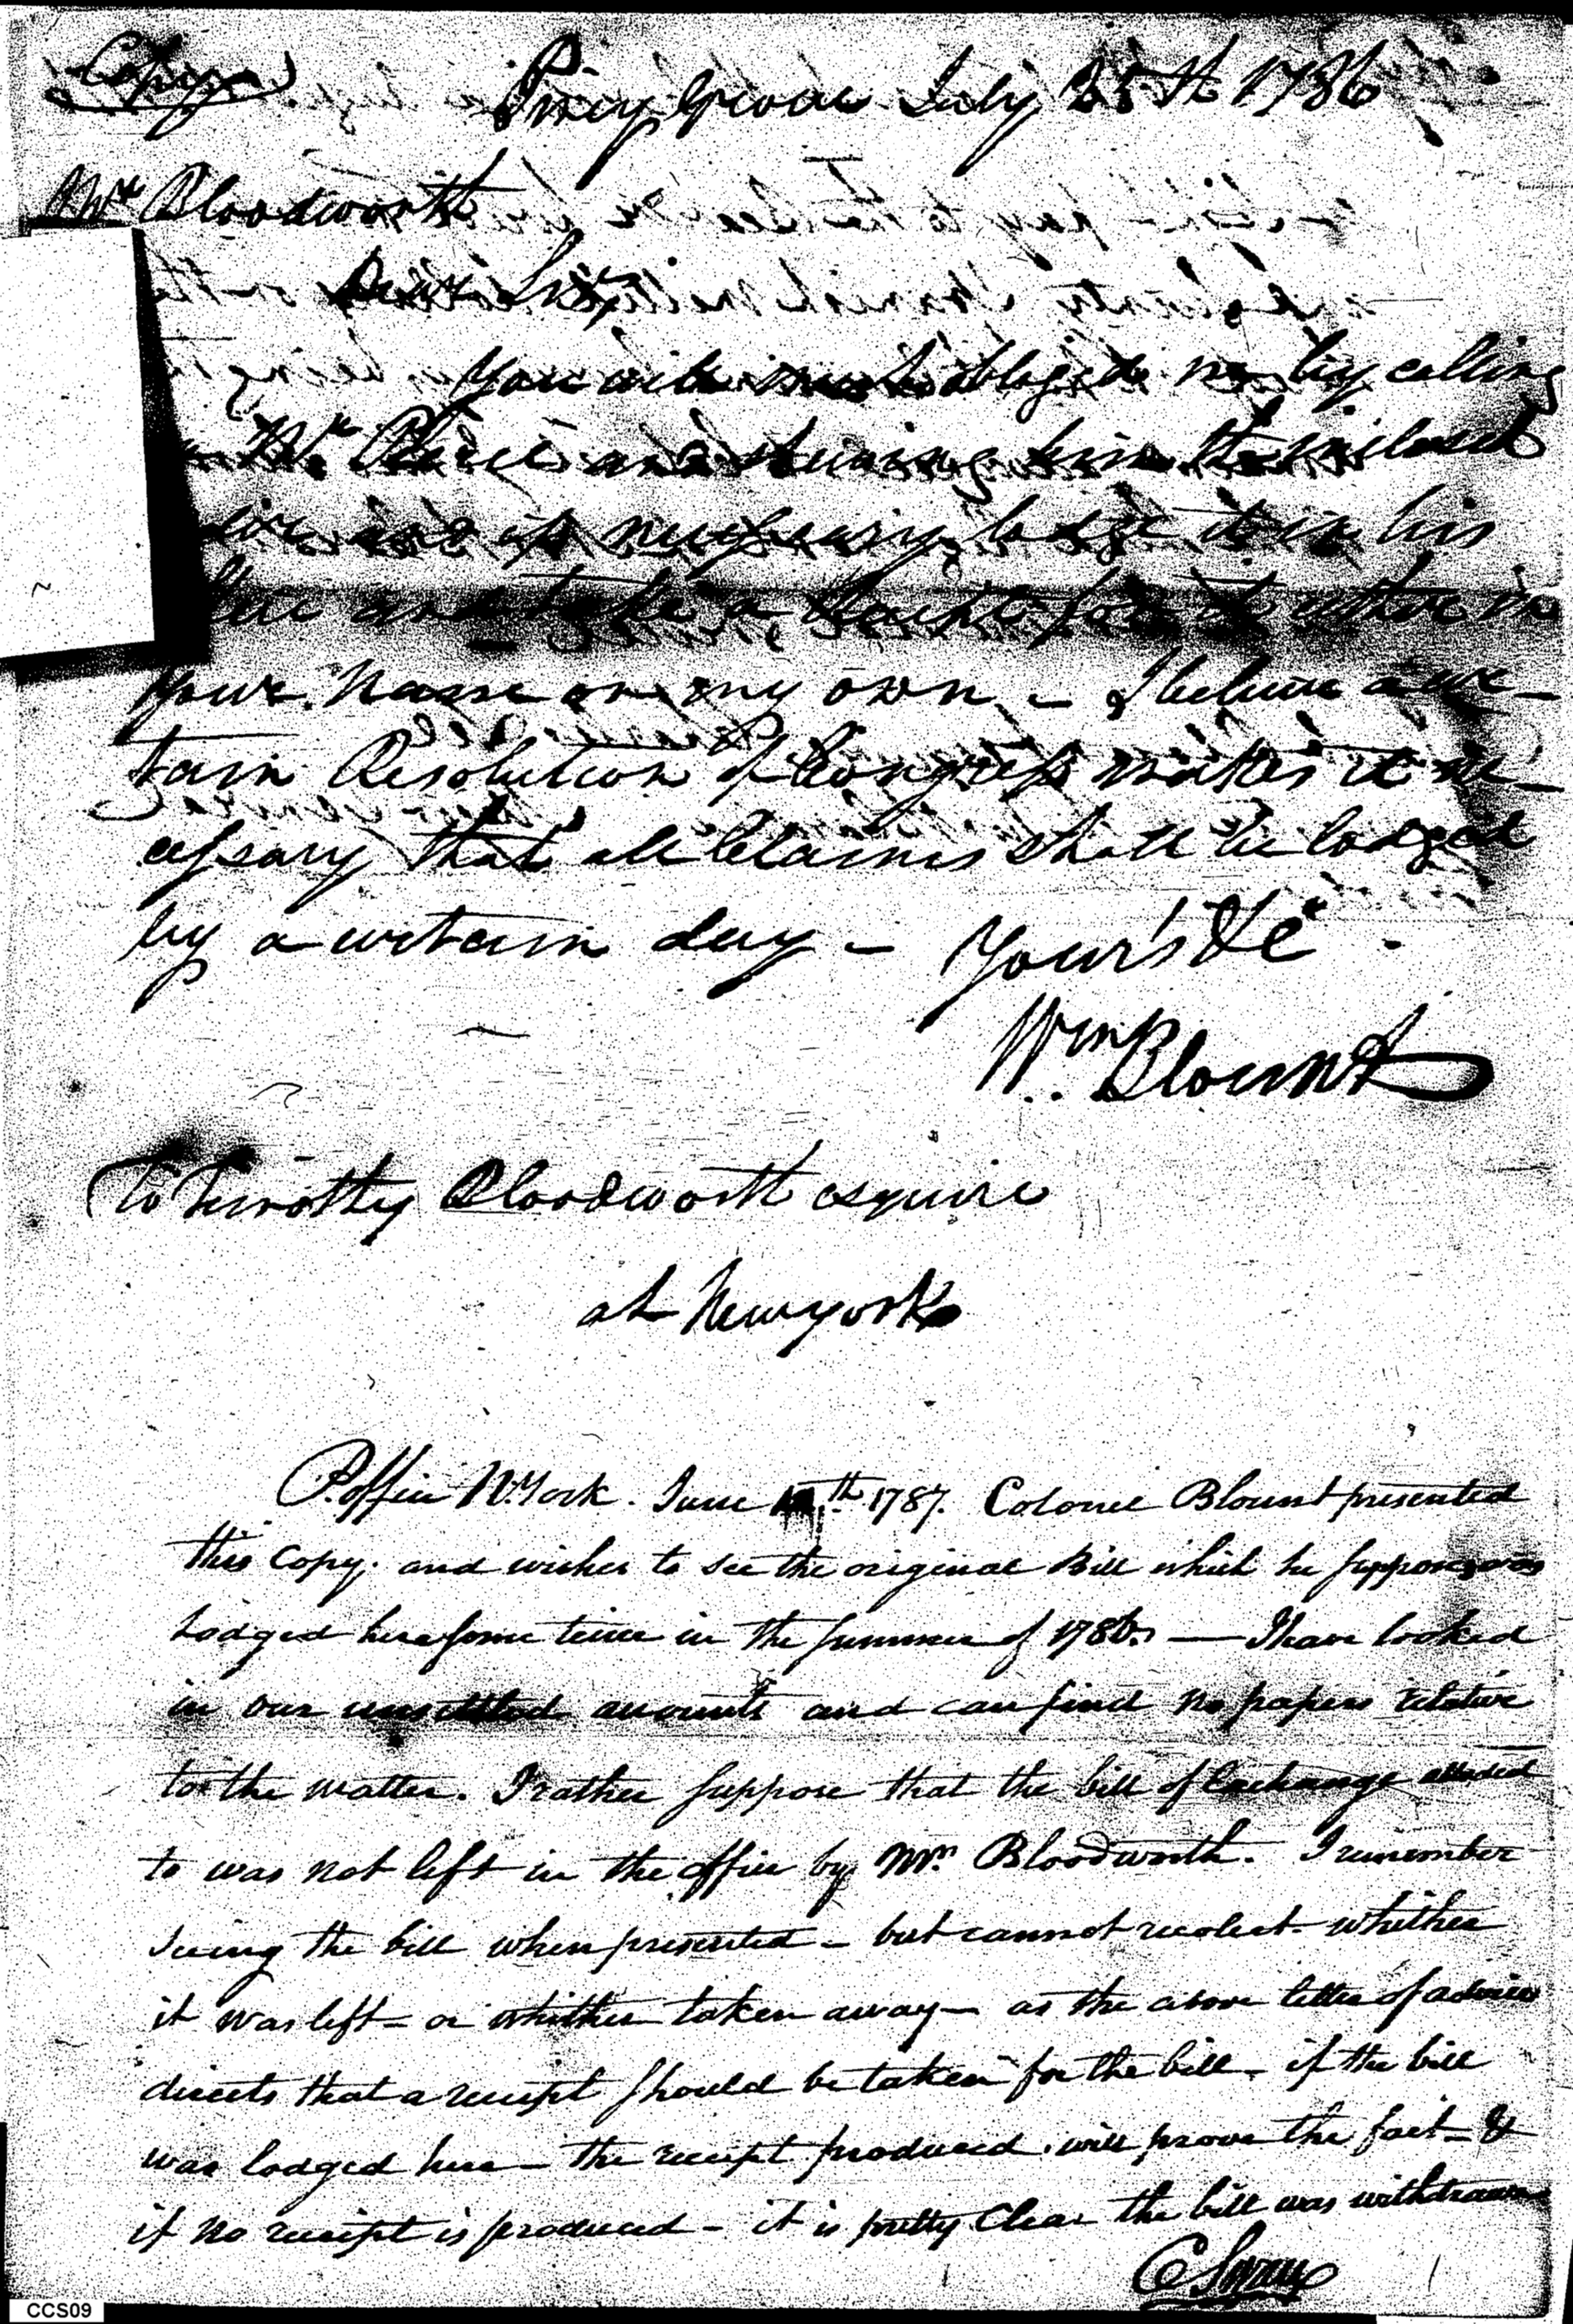 Copy
Piney Grove July 25th 1786
Mr Bloodworth
Dear Sir,
You will much oblige me by calling
Mr Pierce and shewing him the inclosed
and if necessary lodge it in his
and take a Receipt for it either in
your Name or my own – I believe a cer-
tain Resolution of Congress makes it ne-
cessary that all Claims shall be lodged
by a certain day – Your's &c
Wm Blount
To Timothy Bloodworth esquire
at Newyork
P. Office N. York. June th 1787. Colonel Blount presented
this Copy. and wishes to see the original Bill which he supposes was
Lodged here some time in the summer of 1786. — I have looked
in our unsettled accounts and can find no papers relative
to the matter. I rather suppose that the bill of Exchange alluded
to was not left in the office by Mr. Bloodworth. I remember
seeing the bill when presented – but cannot recolect whither
it was left – or whither taken away – as the above letter of advice
directs that a receipt should be taken for the bill – if the bill
was lodged here – the receipt produced. will prove the fact – &
if no receipt is produced – it is pretty Clear the bill was withdrawn
CCS09